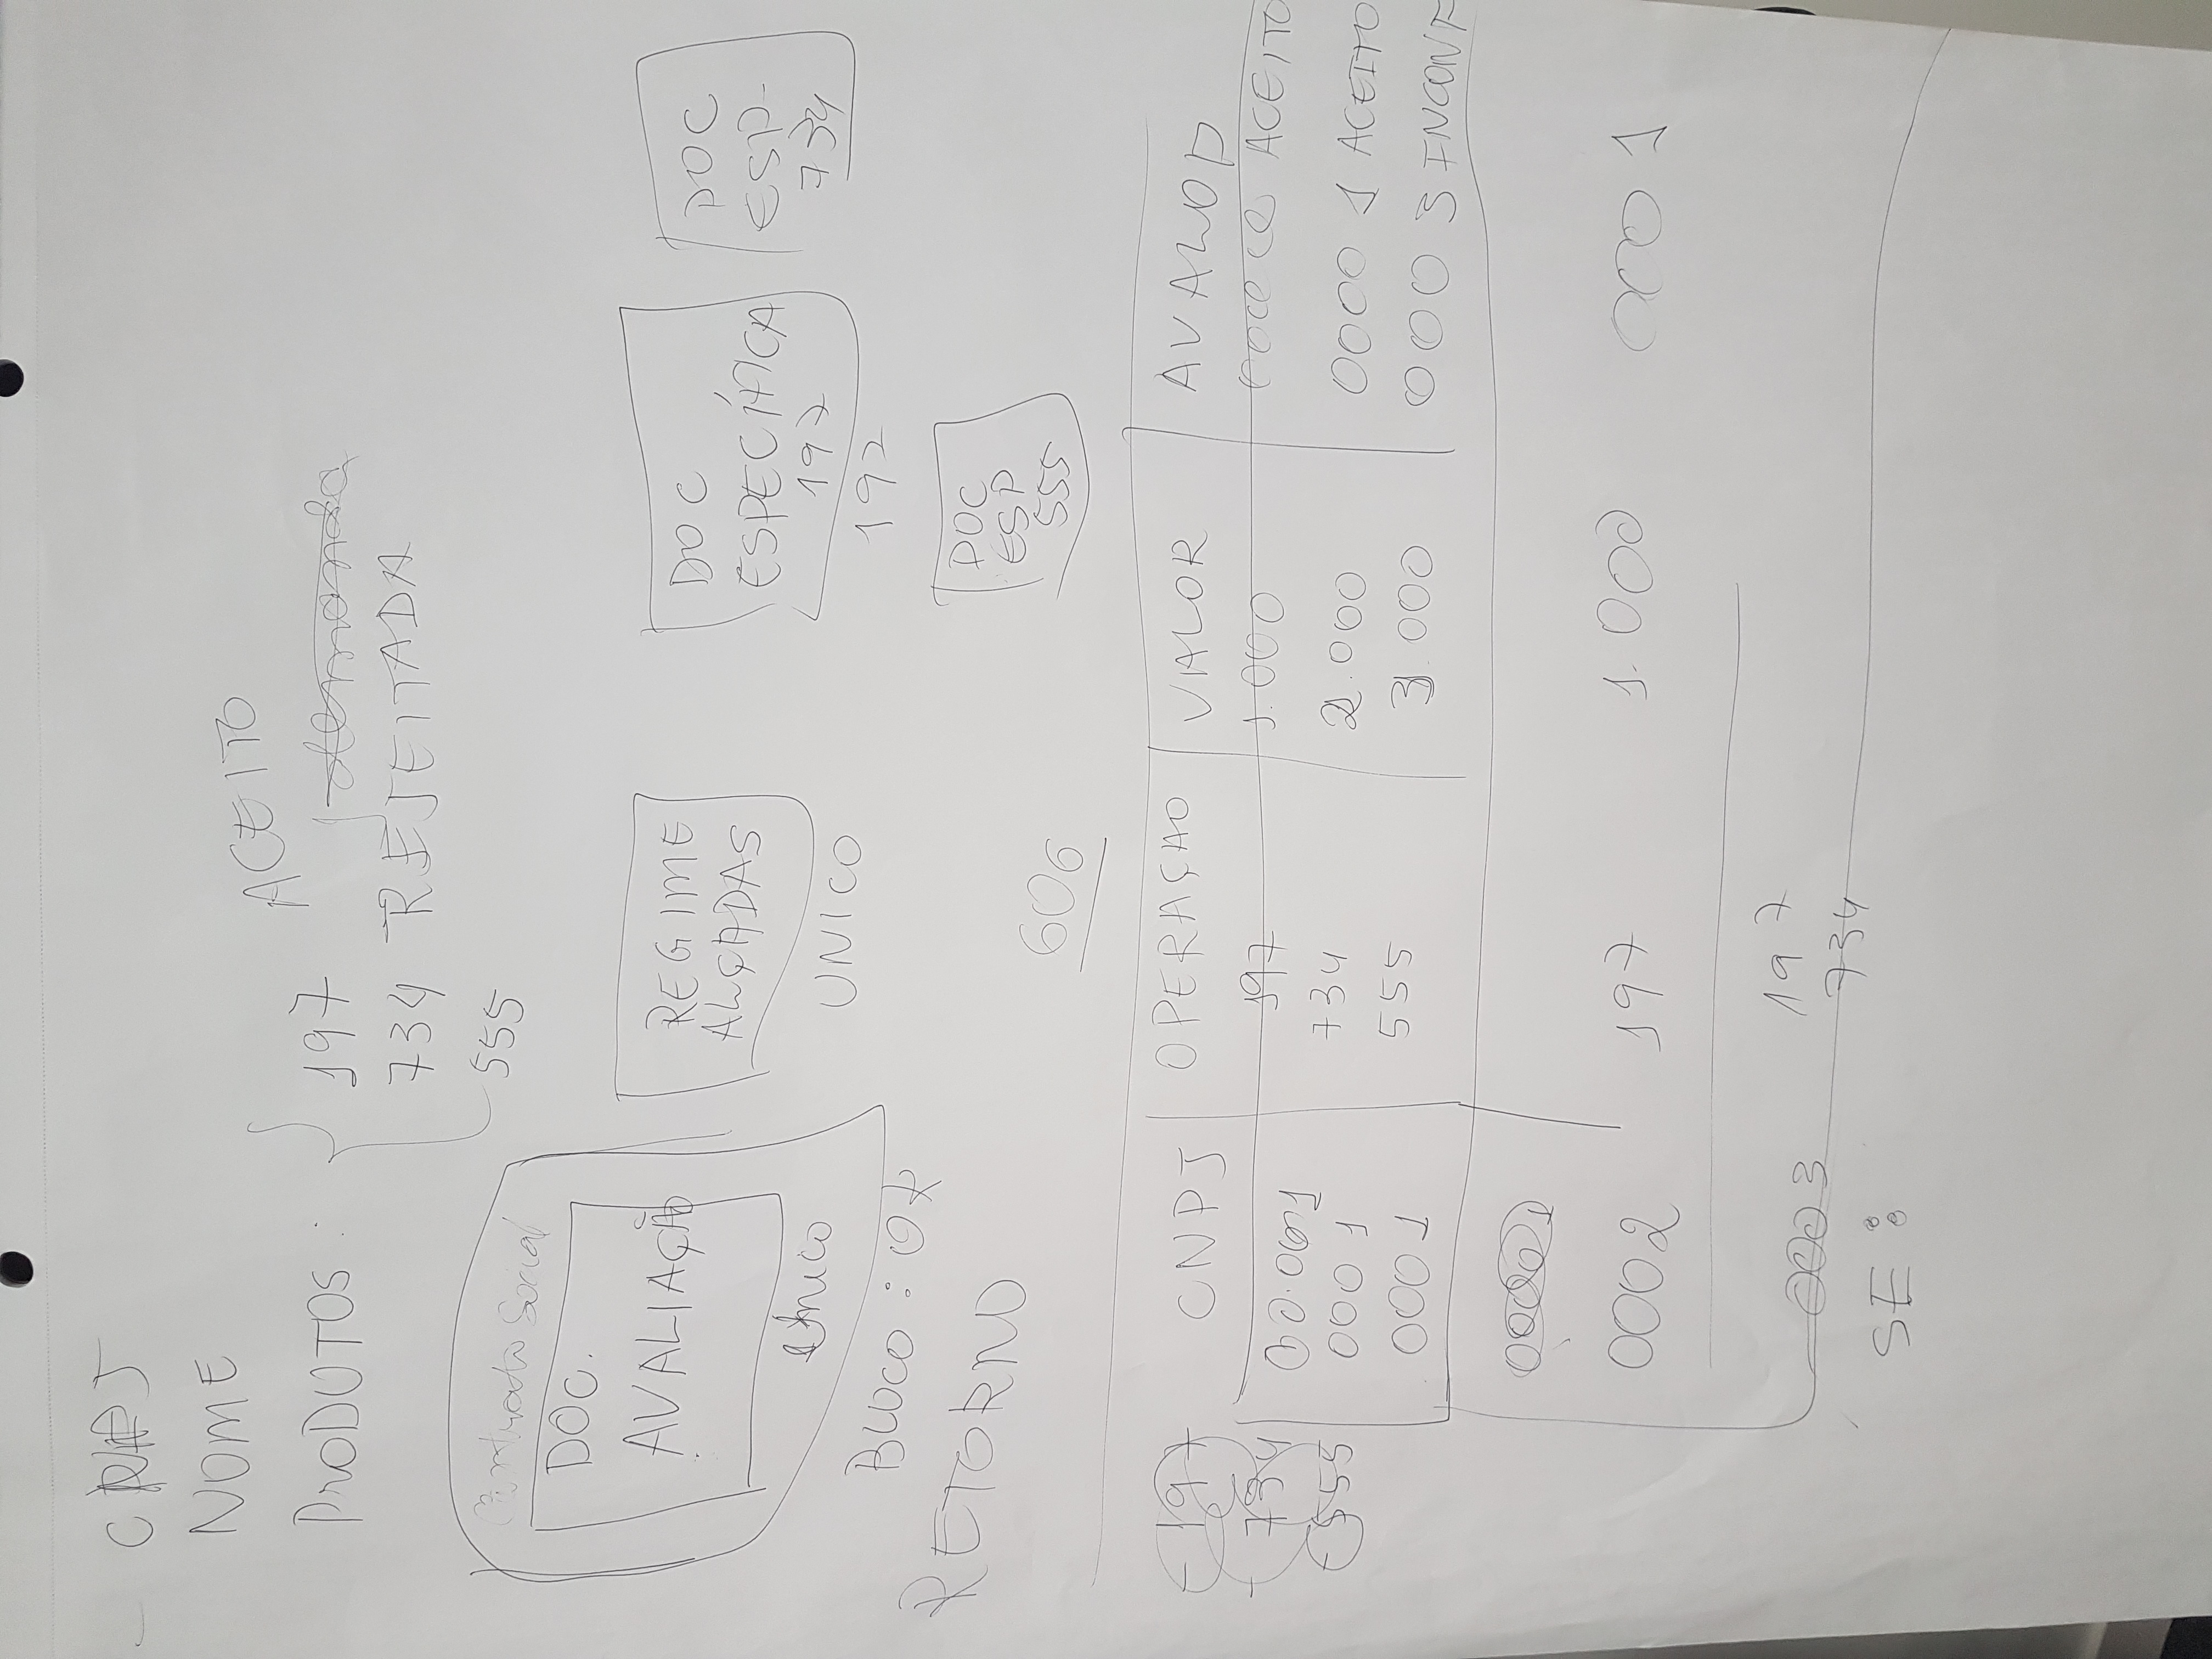 CNPJ
NOME
ACEITO
PRODUTOS : 197
734 REJEITADA
555
Contrato Social
DOC.
AVALIAÇÃO
Único
BLOCO : OK
REGIME
ALÇADAS
UNICO
DOC
ESPECÍFICA
197
197
DOC
ESP-
734
DOC
ESP
555
RETORNO
606
- 197
- 734
- 555
CNPJ OPERAÇAO VALOR
197 1.000 ACEITO
0001 734 2.000 0000 1 ACEITO
0001 555 3.000 000 3 INCONF
0002 197 1.000 000 1
0003 197
734
SE :